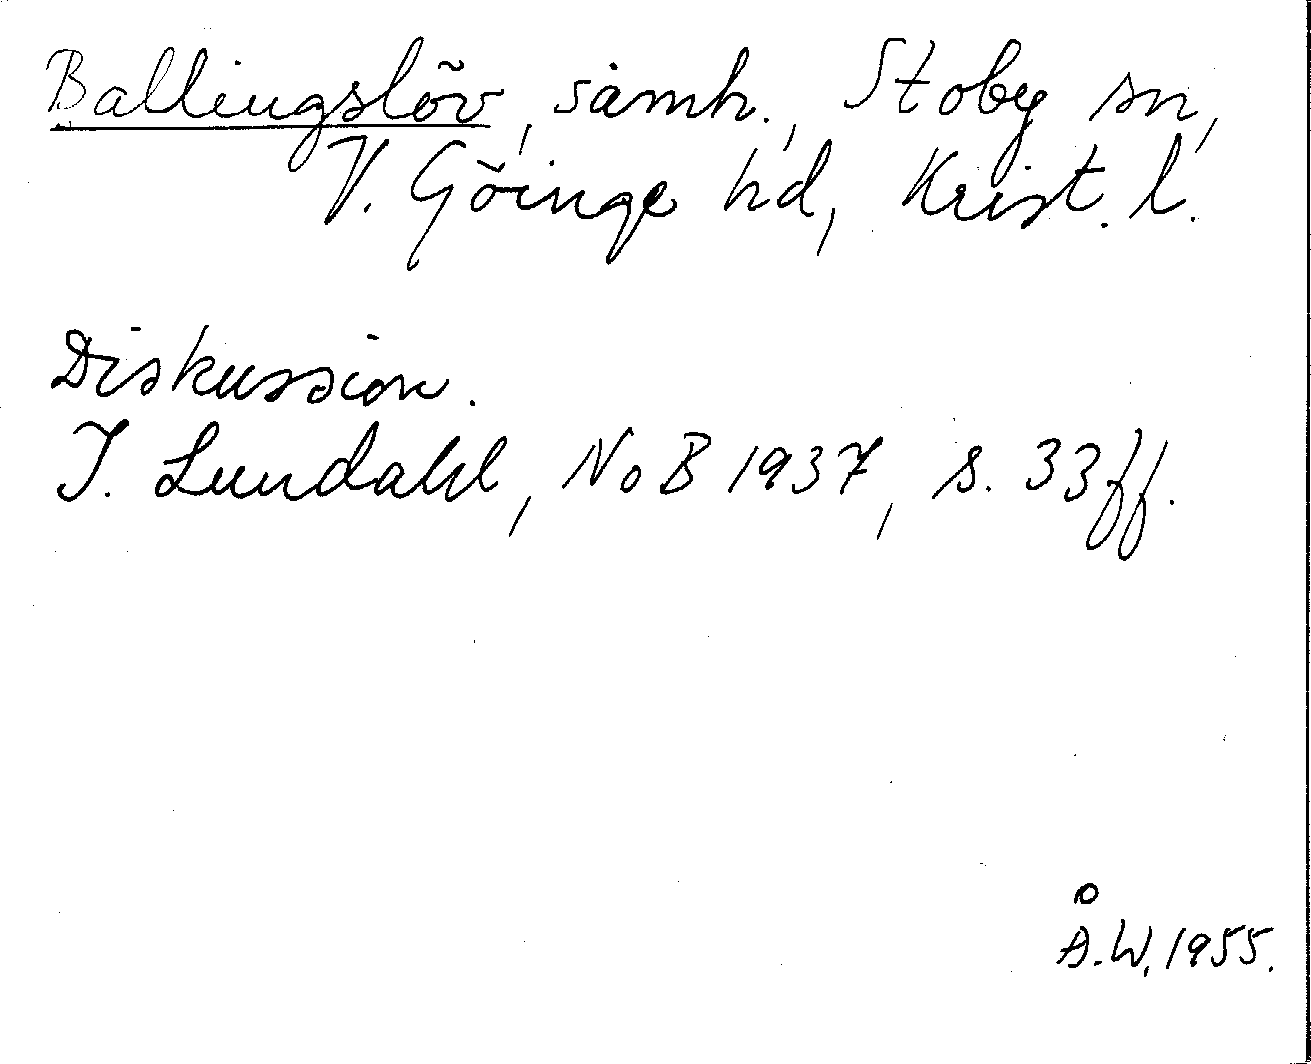 Ballingslöv, samh., Stoby sn,
V. Göinge hd, Krist. l.
Diskussion.
I. Lundahl, NoB 1937, s. 33ff.
Å.W. 1955.